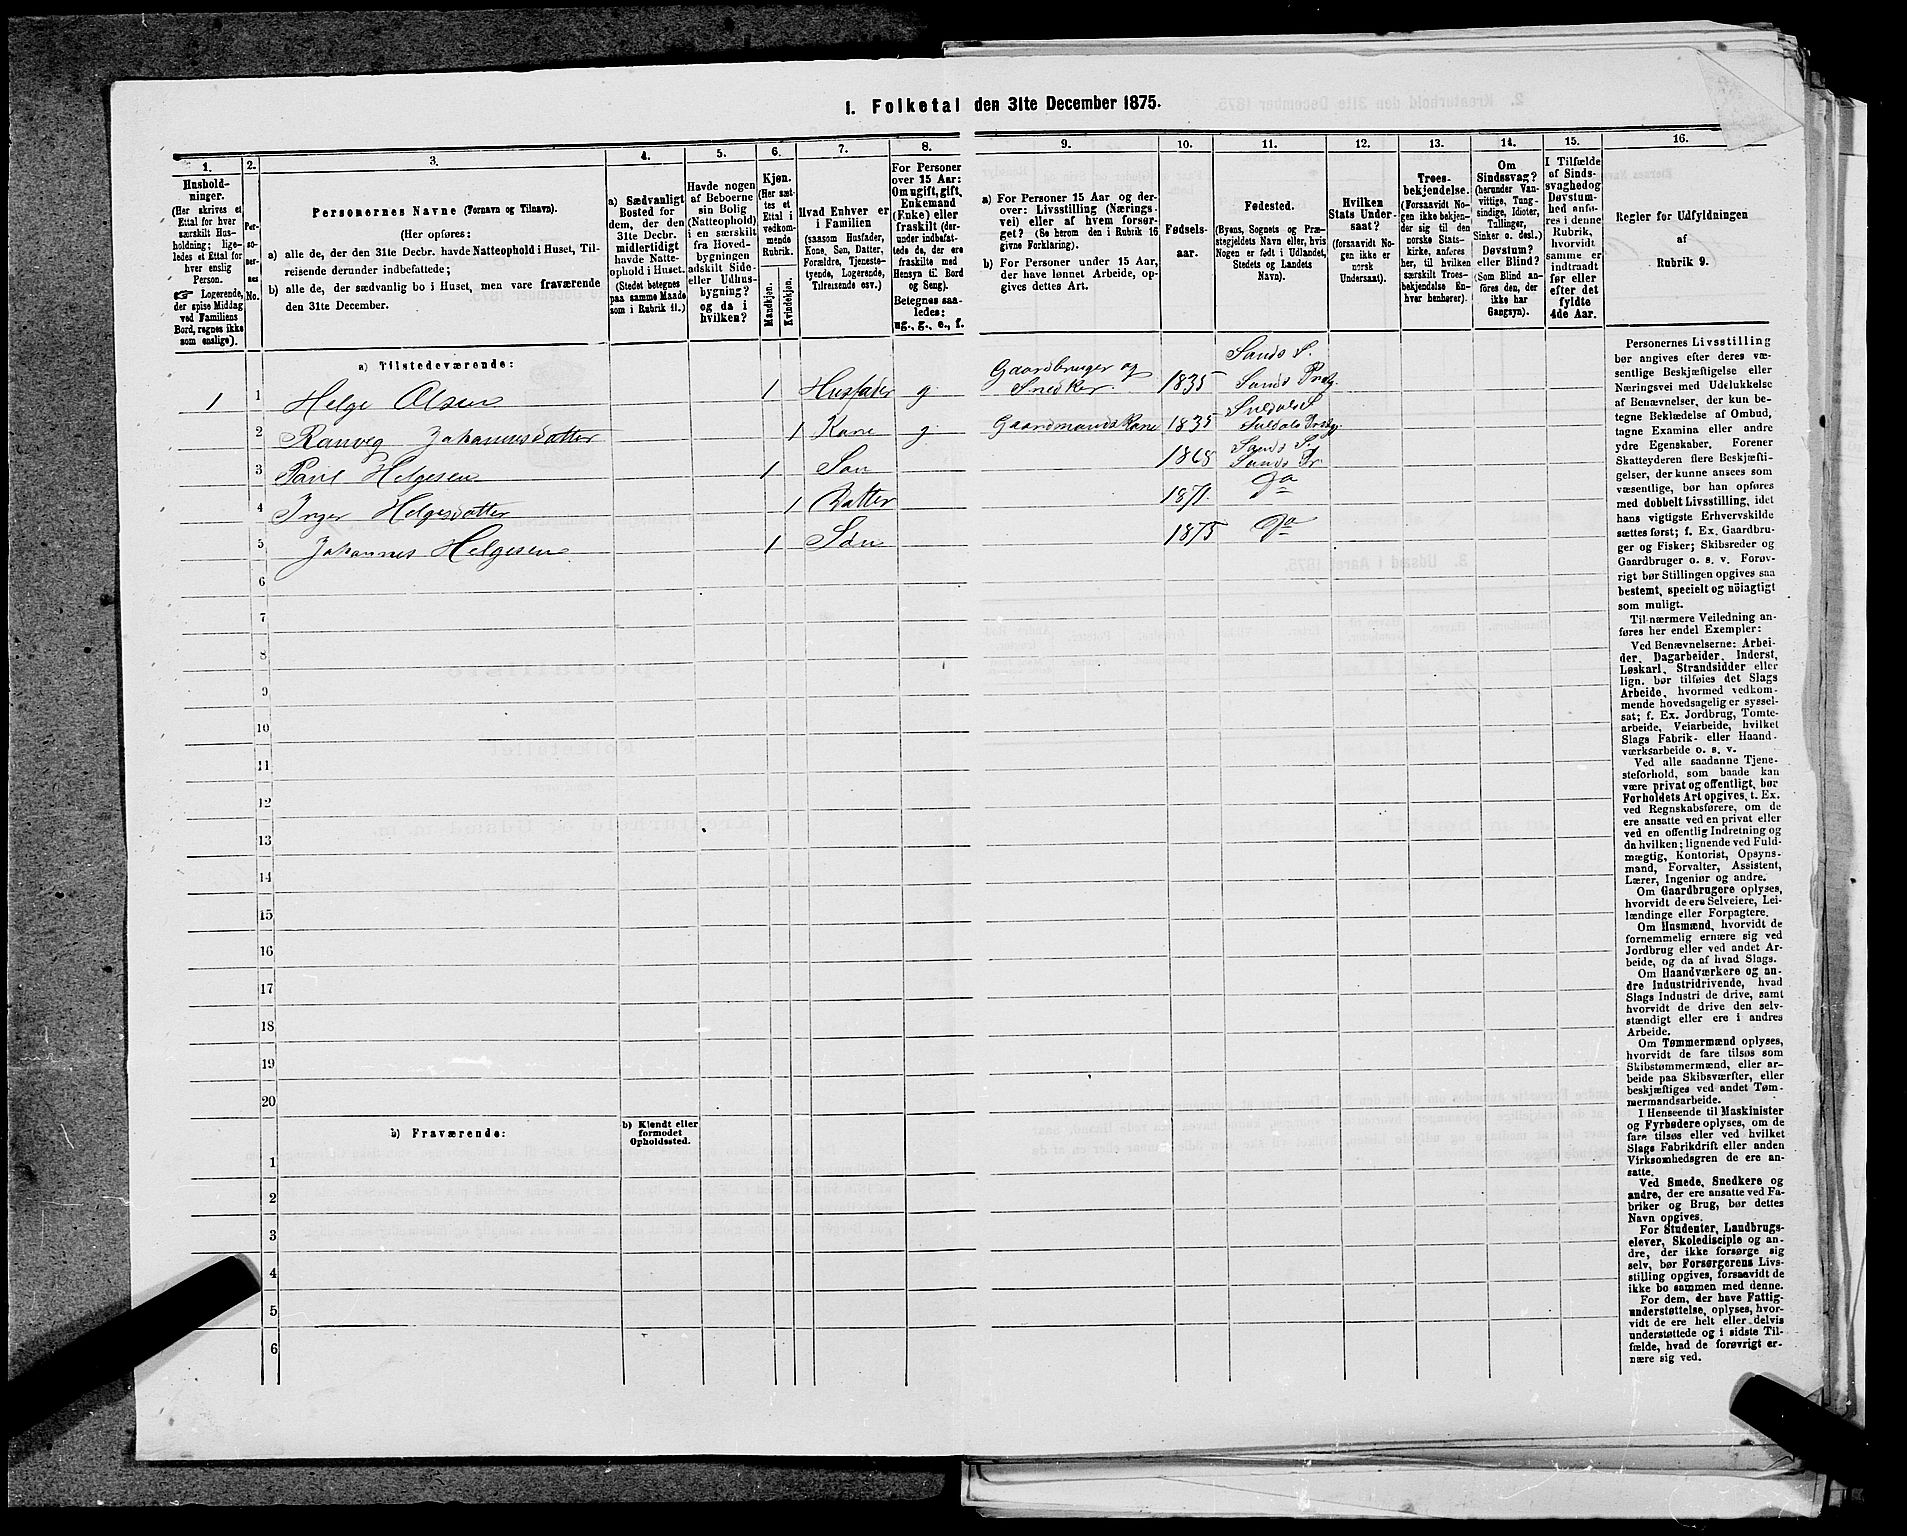 1. Folketal den 31te December 1875.
1.
Hushold-
ninger.
(Her skrives et
Ettal for hver
særskilt Hus-
holdning; lige-
ledes et Ettal for
hver enslig
Person.
☞ Logerende,
der spise Middag
ved Familiens
Bord, regnes ikke
som enslige).
2.
Per-
so-
ner-
nes
No.
3.
Personernes Navne (Fornavn og Tilnavn).
(Her opføres:
a) alle de, der den 31te Decbr. havde Natteophold i Huset, Til-
reisende derunder indbefattede;
b) alle de, der sædvanlig bo i Huset, men vare fraværende
den 31te December.
4.
a) Sædvanligt
Bosted for
dem, der den
31te Decbr.
midlertidigt
havde Natte-
ophold i Huset.
(Stedet betegnes
paa samme Maade
som i Rubrik 11.)
5.
Havde nogen
af Beboerne
sin Bolig
(Natteophold)
i en særskilt
fra Hoved-
bygningen
adskilt Side-
eller Udhus-
bygning?
og da i
hvilken?
6.
Kjøn.
(Her sæt-
tes et
Ettal i
vedkom-
mende
Rubrik.
Mandkjøn.
Kvindekjøn.
7.
Hvad Enhver er
i Familien
(saasom Husfader,
Kone, Søn, Datter,
Forældre, Tjeneste-
tyende, Logerende,
Tilreisende osv.)
8.
For Personer
over 15 Aar:
Om ugift, gift,
Enkemand
(Enke) eller
fraskilt (der-
under indbefat-
tede de, der ere
fraskilte med
Hensyn til Bord
og Seng).
Betegnes saa-
ledes:
ug., g., e., f.
9.
a) For Personer 15 Aar og der-
over: Livsstilling (Nærings-
vei) eller af hvem forsør-
get? (Se herom den i Rubrik 16
givne Forklaring).
b) For Personer under 15 Aar,
der have lønnet Arbeide, op-
gives dettes Art.
10.
Fødsels-
aar.
11.
Fødested.
(Byens, Sognets og Præ-
stegjeldets Navn eller, hvis
Nogen er født i Udlandet,
Stedets og Landets
Navn).
12.
Hvilken
Stats Under-
saat?
(forsaavidt No-
gen ikke er
norsk
Undersaat).
13.
Troes-
bekjendelse.
(Forsaavidt No-
gen ikke bekjen-
der sig til den
norske Stats-
kirke, anføres
her, til hvilken
særskilt Troes-
bekjendelse En-
hver henhører).
14.
Om
Sindssvag?
(herunder Van-
vittige, Tung-
sindige, Idioter,
Tullinger,
Sinker o. desl.)
Døvstum?
eller Blind?
(Som Blind an-
føres den, der
ikke har
Gangsyn).
15.
I Tilfælde
af Sinds-
svaghed og
Døvstum-
hed anfø-
res i denne
Rubrik,
hvorvidt
samme er
indtraadt
før eller
efter det
fyldte
4de Aar.
16.
Regler for Udfyldningen
af
Rubrik 9.
a) Tilstedeværende:
1 1 Helge Olsen 1 Husfader g Gaardbruger og Snedker. 1835 Sands S. Sands Prstg.
2 Ranveg Johannesdatter 1 Kone g. Gaardmands Kone 1835 Suldals S Suldals Prstg.
3 Paul Helgesen 1 Søn 1868 Sands S. Sands Pr.
4 Inger Helgesdatter 1 Datter 1871. Do
5 Johannes Helgesen 1 Søn 1875 Do
6
7
8
9
10
11
12
13
14
15
16
17
18
19
20
b) Fraværende:
b) Kjendt eller
formodet
Opholdssted.
1
2
3
4
5
6
Personernes Livsstilling
bør angives efter deres væ-
sentlige Beskjæftigelse eller
Næringsvei med Udelukkelse
af Benævnelser, der kun be-
tegne Beklædelse af Ombud,
tagne Examina eller andre
ydre Egenskaber. Forener
Skatteyderen flere Beskjæfti-
gelser, der kunne ansees som
væsentlige, bør han opføres
med dobbelt Livsstilling, idet
hans vigtigste Erhvervskilde
sættes først; f. Ex. Gaardbru-
ger og Fisker; Skibsreder og
Gaardbruger o. s. v. Forøv-
rigt bør Stillingen opgives saa
bestemt, specielt og nöiagtigt
som muligt.
Til nærmere Veiledning an-
føres her endel Exempler:
Ved Benævnelserne: Arbei-
der, Dagarbeider, Inderst,
Løskarl, Strandsidder eller
lign. bør tilføies det Slags
Arbeide, hvormed vedkom-
mende hovedsagelig er syssel-
sat; f. Ex. Jordbrug, Tomte-
arbeide, Veiarbeide, hvilket
Slags Fabrik- eller Haand-
værksarbeide o. s. v.
Ved alle saadanne Tjene-
steforhold, som baade kan
være privat og offentligt, bør
Forholdets Art opgives, t. Ex.
ved Regnskabsførere, om de
ere ansatte ved en privat eller
ved en offentlig Indretning og
da hvilken; lignende ved Fuld-
mægtig, Kontorist, Opsyns-
mand, Forvalter, Assistent,
Lærer, Ingeniør og andre.
Om Gaardbrugere oplyses,
hvorvidt de ere Selveiere, Lei-
lændinge eller Forpagtere.
Om Husmænd, hvorvidt de
fornemmelig ernære sig ved
Jordbrug eller ved andet Ar-
beide, og da af hvad Slags.
Om Haandværkere og an-
dre Industridrivende, hvad
Slags Industri de drive, samt
hvorvidt de drive den selv-
stændigt eller ere i andres
Arbeide.
Om Tømmermænd oplyses,
hvorvidt de fare tilsøs som
Skibstømmermænd, eller ar-
beide paa Skibsværfter, eller
beskjæftiges ved andet Tøm-
mermandsarbeide.
I Henseende til Maskinister
og Fyrbødere oplyses, om de
fare tilsøs eller ved hvilket
Slags Fabrikdrift eller anden
Virksomhedsgren de ere an-
satte.
Ved Smede, Snedkere og
andre, der ere ansatte ved Fa-
briker og Brug, bør dettes
Navn opgives.
For Studenter, Landbrugs-
elever, Skoledisciple og an-
dre, der ikke forsørge sig
selv, bør Forsørgerens Livs-
stilling opgives, forsaavidt de
ikke bo sammen med denne.
For dem, der have Fattig-
understøttelse, oplyses, hvor-
vidt de ere helt eller delvis
understøttede og i sidste Til-
fælde, hvad de forøvrigt er-
nære sig ved.